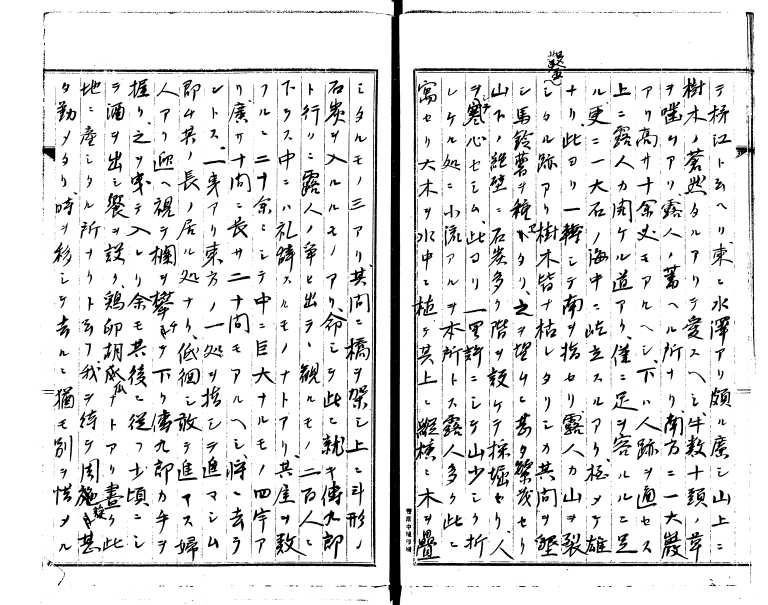 テ楊江ト云ヘリ東ニ水澤アリ頗ル廣シ山上ニ
樹木ノ蒼然タルアリテ愛スヘシ牛数十頭ノ草
ヲ噛ムアリ露人ノ蓄ヘル所ナリ南方ニ一大巖
アリ高サ十余丈モアルヘシ下ハ人跡ヲ通セス
上ニ露人カ開ケル道アリ僅ニ足ヲ容ルルニ足
ル更ニ一大石ノ海中ニ屹立スルアリ極メテ雄
ナリ此ヨリ一轉シテ南ヲ指セリ露人カ山ヲ裂
シタル跡アリ樹木皆ナ枯レタリシカ其間ヲ墾
墾
シ馬鈴薯ヲ種ヘタリ之ヲ望ムニ甚タ繁茂セリ
山下ノ絶壁ニ石炭多ク階ヲ設ケテ採堀セリ人
ヲ寒心セシム此ヨリ一里許ニシテ山少シク折
レケル処ニ小流アルヲ本所トス露人多ク此ニ
寓セリ大木ヲ水中ニ植テ其上ニ縦横ニ木ヲ疊
シタルモノ三アリ其間ニ橋ヲ架シ上ニ斗形ノ
石炭ヲ入ルルモノアリ命シテ此ニ就キ傳九郎
ト行リニ露人ノ争ヒ出テ観ルモノ二百人ニ
下ラス中ニハ礼辞スルモノナトアリ其屋ヲ数
フルニ二十余ニシテ中ニ巨大ナルモノ四宇ア
リ廣サ十間ニ長サ二十間モアルヘシ将ニ去ラ
ントス一事アリ東方ノ一処ヲ指シテ進マシム
即ム其ノ長ノ居ル処ナリ低徊シ敢テ進マス婦
人アリ迎ヘ視テ欄ヲ攀チ下リ傳九郎カ手ヲ
握リ之ヲ牽テ入レリ余モ其後ニ従フ土頃ニシ
ヲ酒ヲ出シ饗ヲ設ク鶏卵胡瓜ナトアリ盡ク此
地ニ産シタル所ナリト云フ我ヲ待テ周旋甚
タ勤メタリ時ヲ移シテ去ルニ猶モ別ヲ惜メル